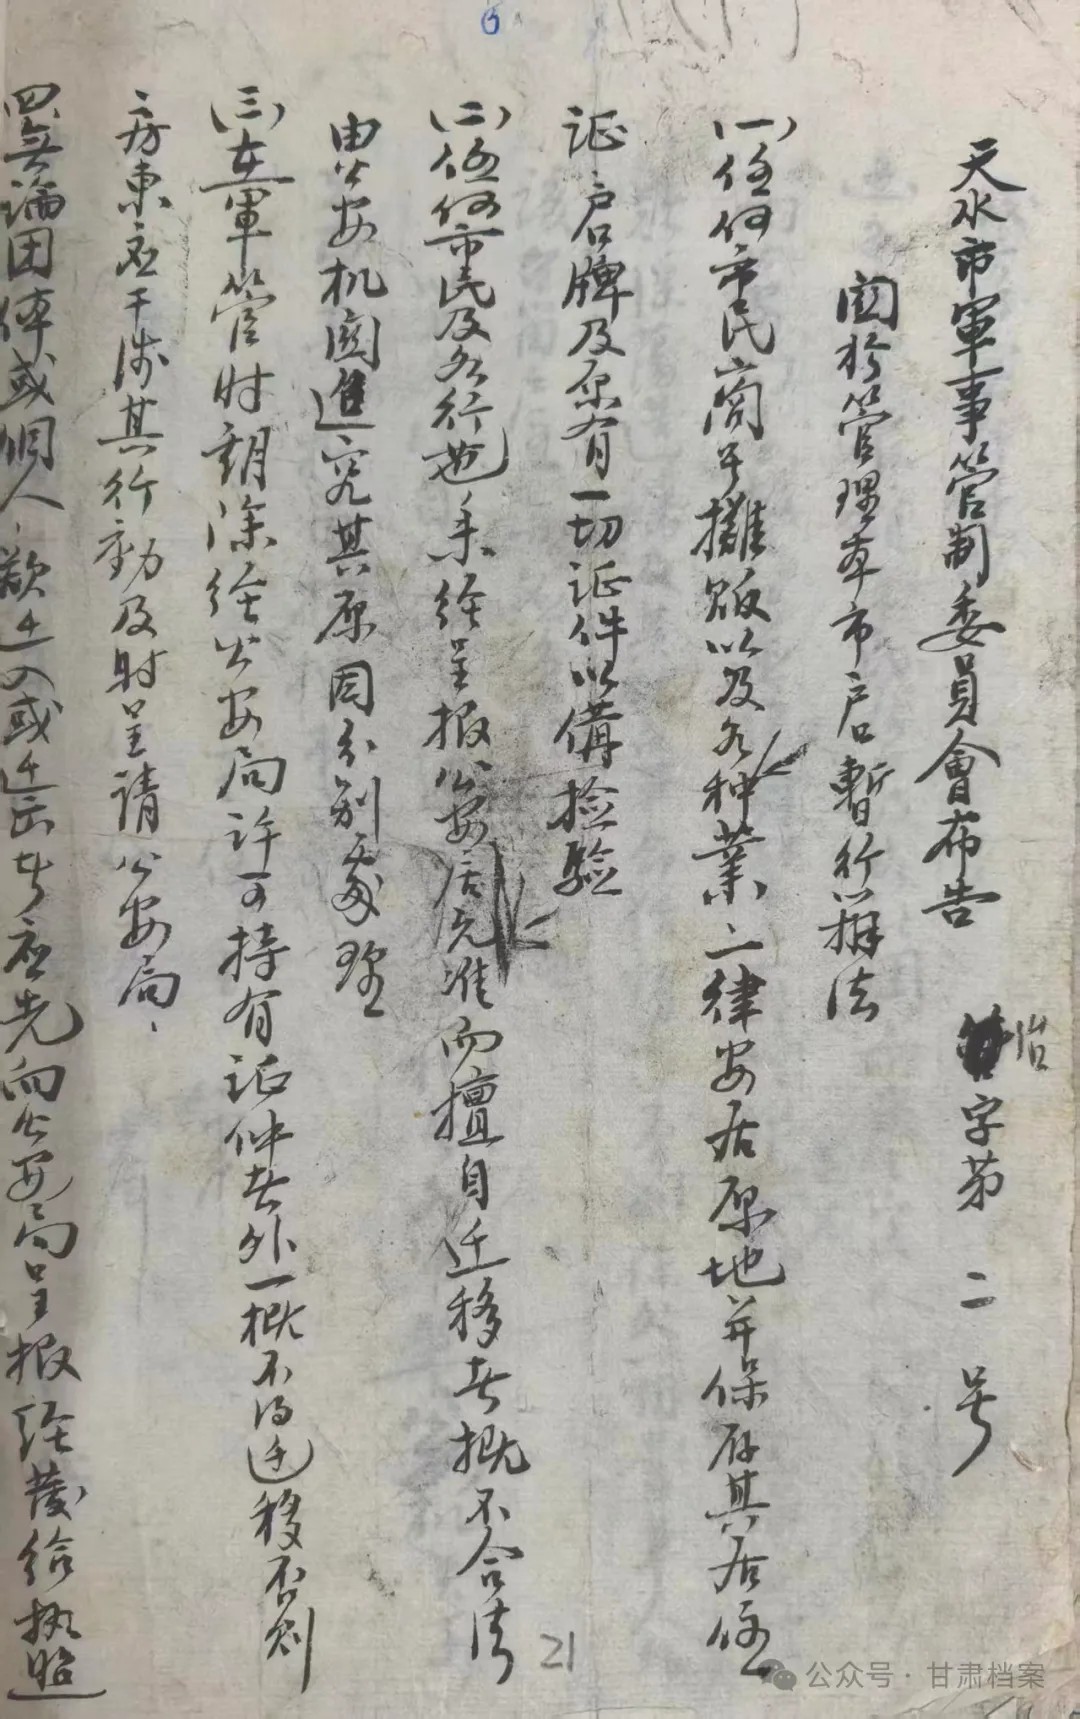 6
天水市軍事管制委員會布告 治字第二号
関於管理本市户口暫行辦法
(一)任何市民商号攤販以及各种業一律安居原地并保存其居住
証户口牌及原有一切证件以備撿驗
(二)任何市民及各行也未經呈报公安局允准而擅自迁移者概不合法
由公安机関進究其原因分别處理
(三)在軍管时期除經公安局许可持有证件者外一概不得迁移否则
房東应干涉其行動及时呈请公安局、
四、無論団体或個人、欲迁入或迁出者应先向公安局呈报經發给执照
21
公众号·甘肃档案